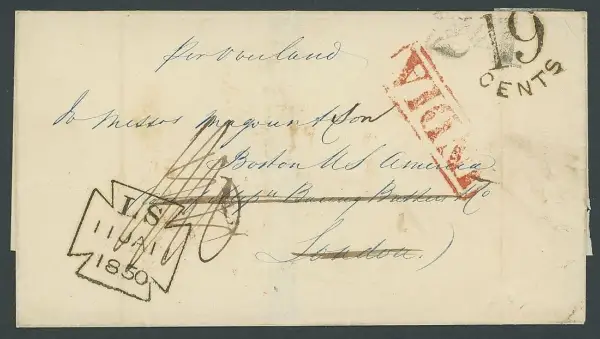 per Overland
19
CENTS
INDIA
To Messrs Magoun & Son
Boston US America
Baring Brothers & Co
London.)
LS
11 JA 1
1850